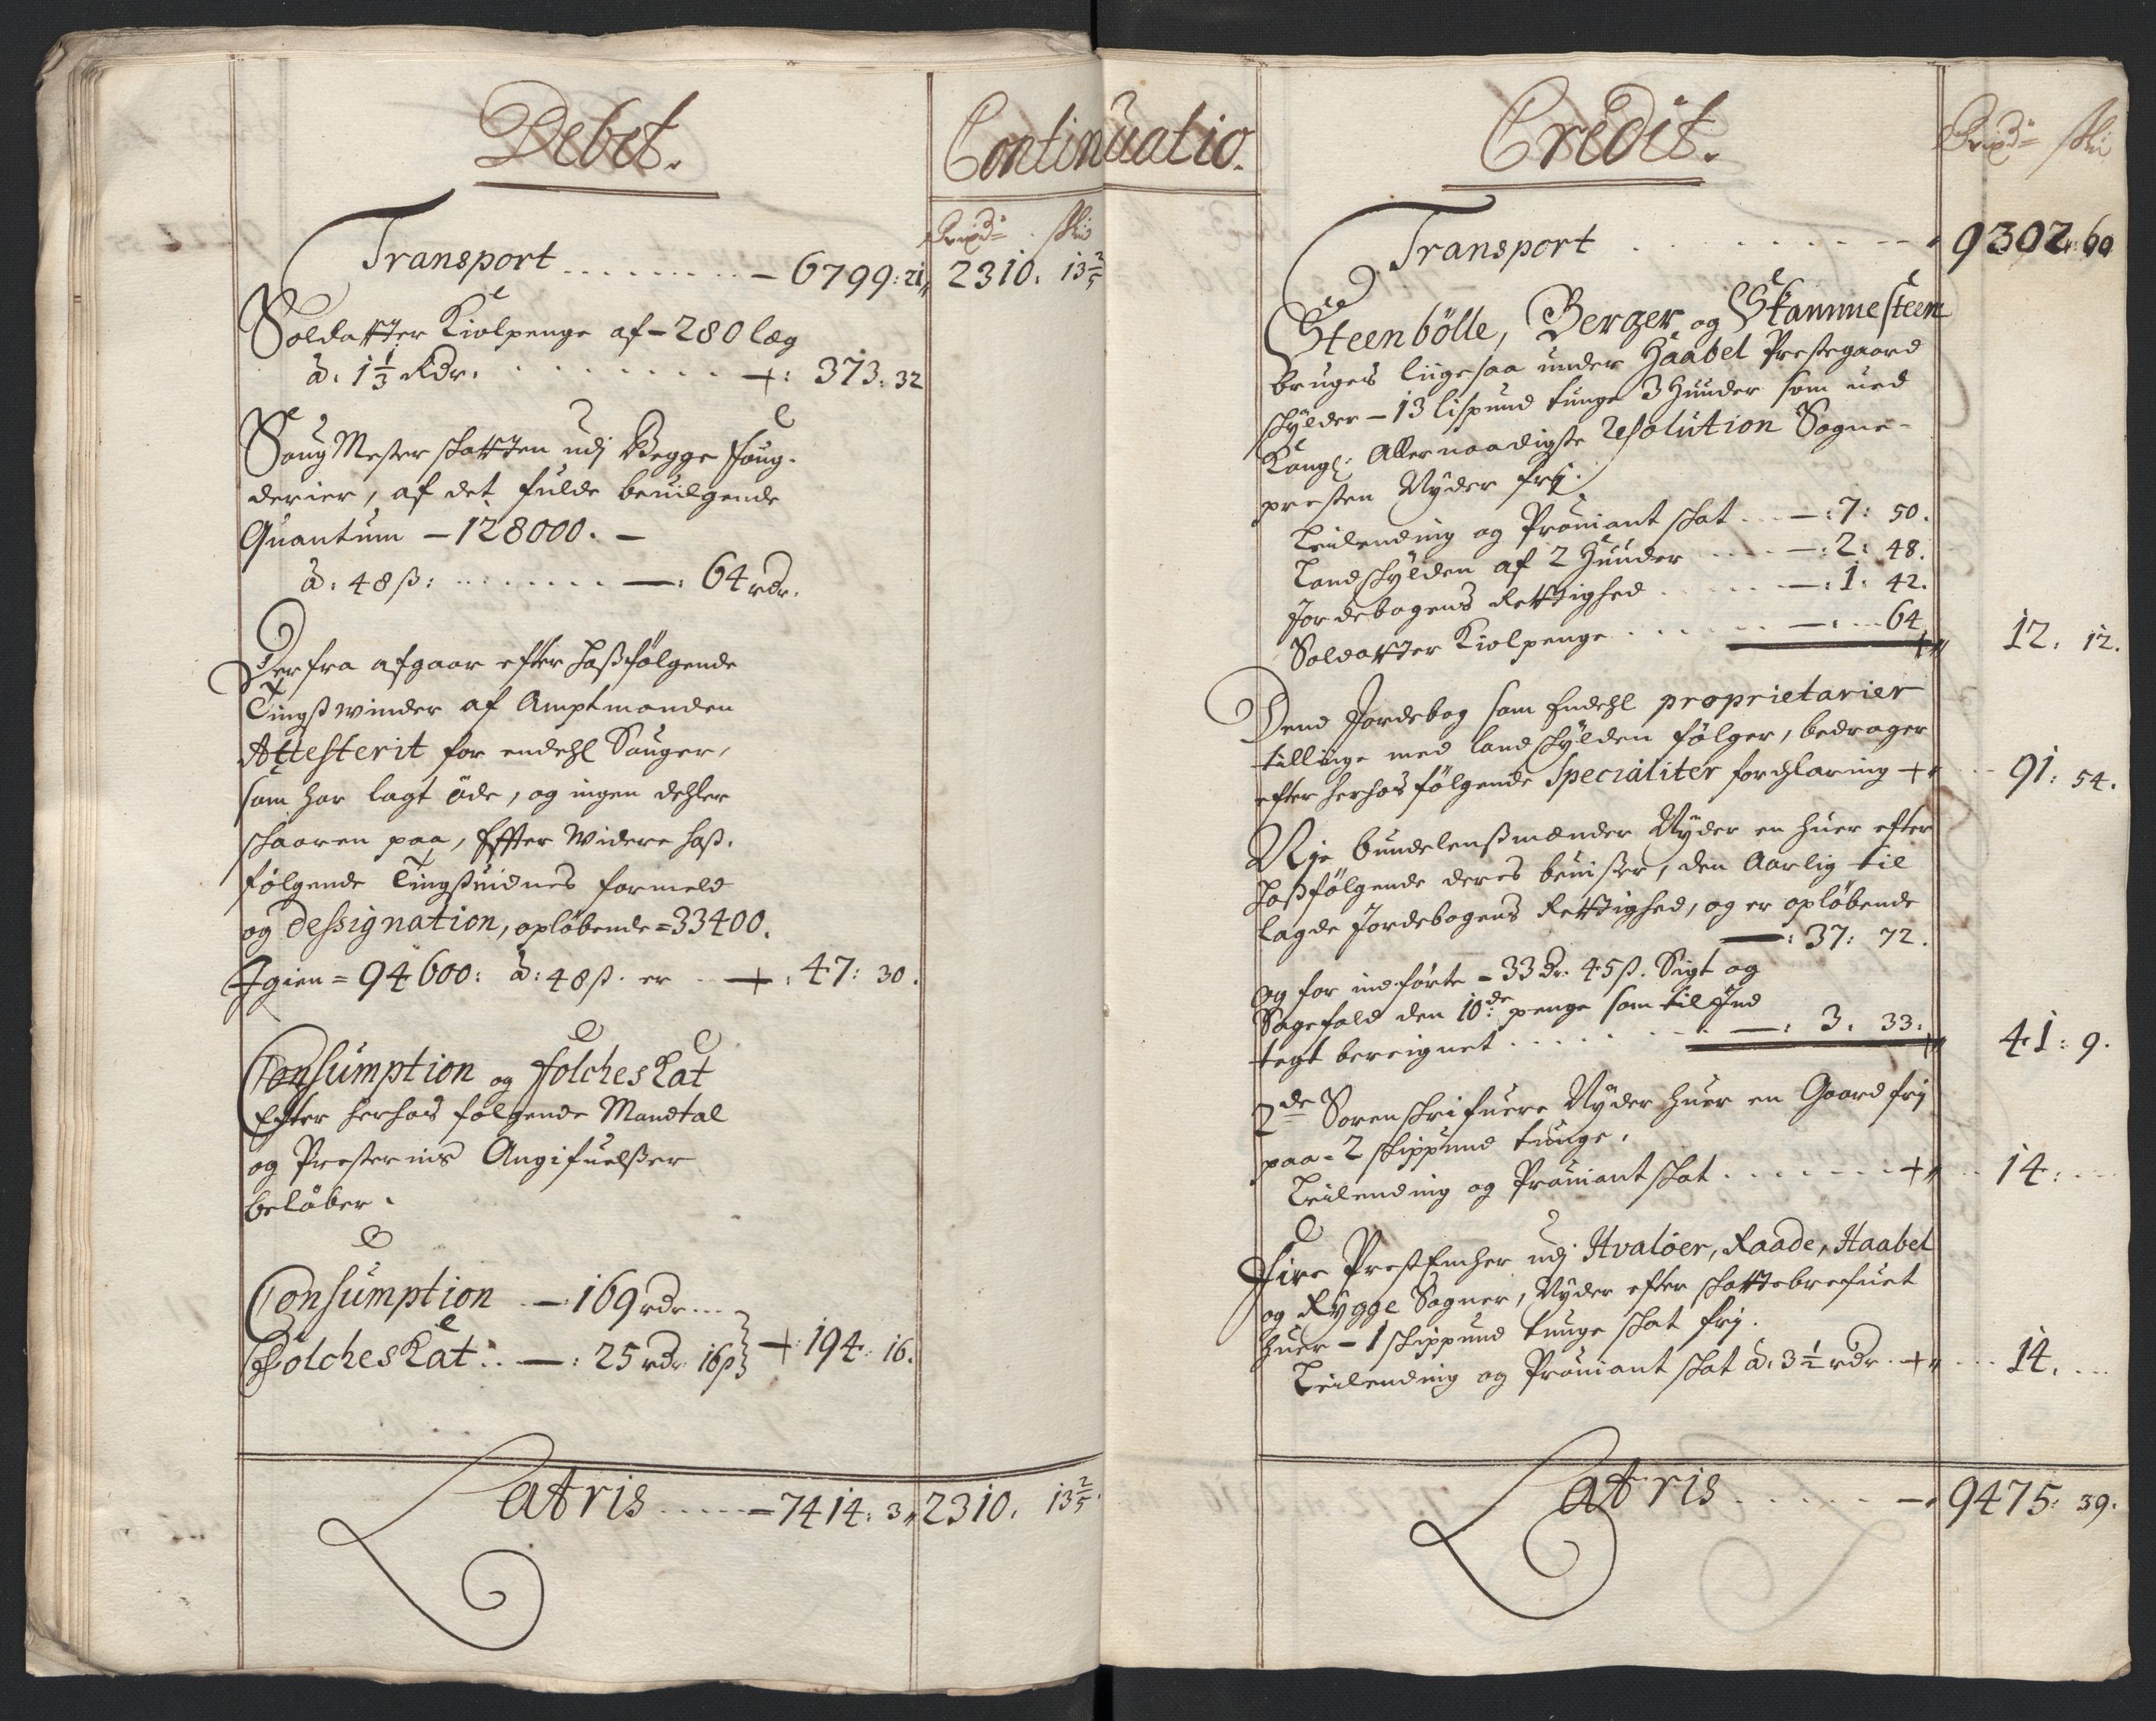 Debet.
Continuatio.
Rixdr. skl
Transport - 6799: 21 2310. 13 2/5
Soldatter Kiolpenge af - 280 læg
à. 1 1/3 Rdr. +: 373: 32
Saug Mester skatten udj Begge foug-
derier, af det fulde beuilgende
Quantum - 128000. -
à: 48 ß: -: 64 rdr.
Derfra afgaar efter hoßfølgende
Tingßwinder af Amptmanden
Attesterit for endehl Sauger,
som har lagt øde, og ingen dehler
skaaren paa, Effter Widere hoß.
følgende Tingßuidnes formeld
og Dessignation, opløbende = 33400.
Igien = 94600: à: 48 ß. er - +: 47: 30.
Consumption og folcheskat
Efter herhos følgende Mandtal
og Presternis Angifuelßer
beløber.
Consumption - 169 rdr.
Folcheskat -: 25 rdr 16 ß + 194: 16.
Latris - 7414: 3 2310. 13 2/5
Credit.
Rixdr skl
Transport 9302: 60
Steenbölle, Berger, og Skammesteen
bruges liigesaa under Haabel Prestegaard
skylder - 13 lispund tunge 3 Huuder som ued
Kongl: Allernaadigste Resolution Sogne-
presten Nyder frj.
Leilending og Prouiant skat -: 7: 50.
Landskylden af 2 Huuder -: 2: 48.
Jordebogens Rettighed -: 1: 42.
Soldatter Kiolpenge -: 64 12. 12.
Dend Jordebog som Endehl proprietarier
tillinge med landskylden følger, bedrager
efter herhos følgende Specialiter forchlaring + 91: 54.
Nje bundelenßmænder Nyder en huer efter
hoßfølgende deres beuißer, den Aarlig til
lagde Jordebogens Rettighed, og er opløbende
-: 37: 72.
og for indførte - 33 Dr. 45 ß. Sigt og
Sagefald den 10de penge som til Ind
tegt bereignet -: 3. 33. 41: 9.
2de Sorenskrifuere Nyder huer en Gaard frj
paa - 2 skippund tunge,
Leilending og Prouiant skat + 14:
Fire PrestEncher udj Hvaløer, Raade, Haabel
og Rygge Sogner, Nyder efter skattebrefuet
huer - 1 skippund tunge skat frj.
Leilending og Prouiant skat à. 3 1/2 rdr. + 14.
Latris 9475: 39.